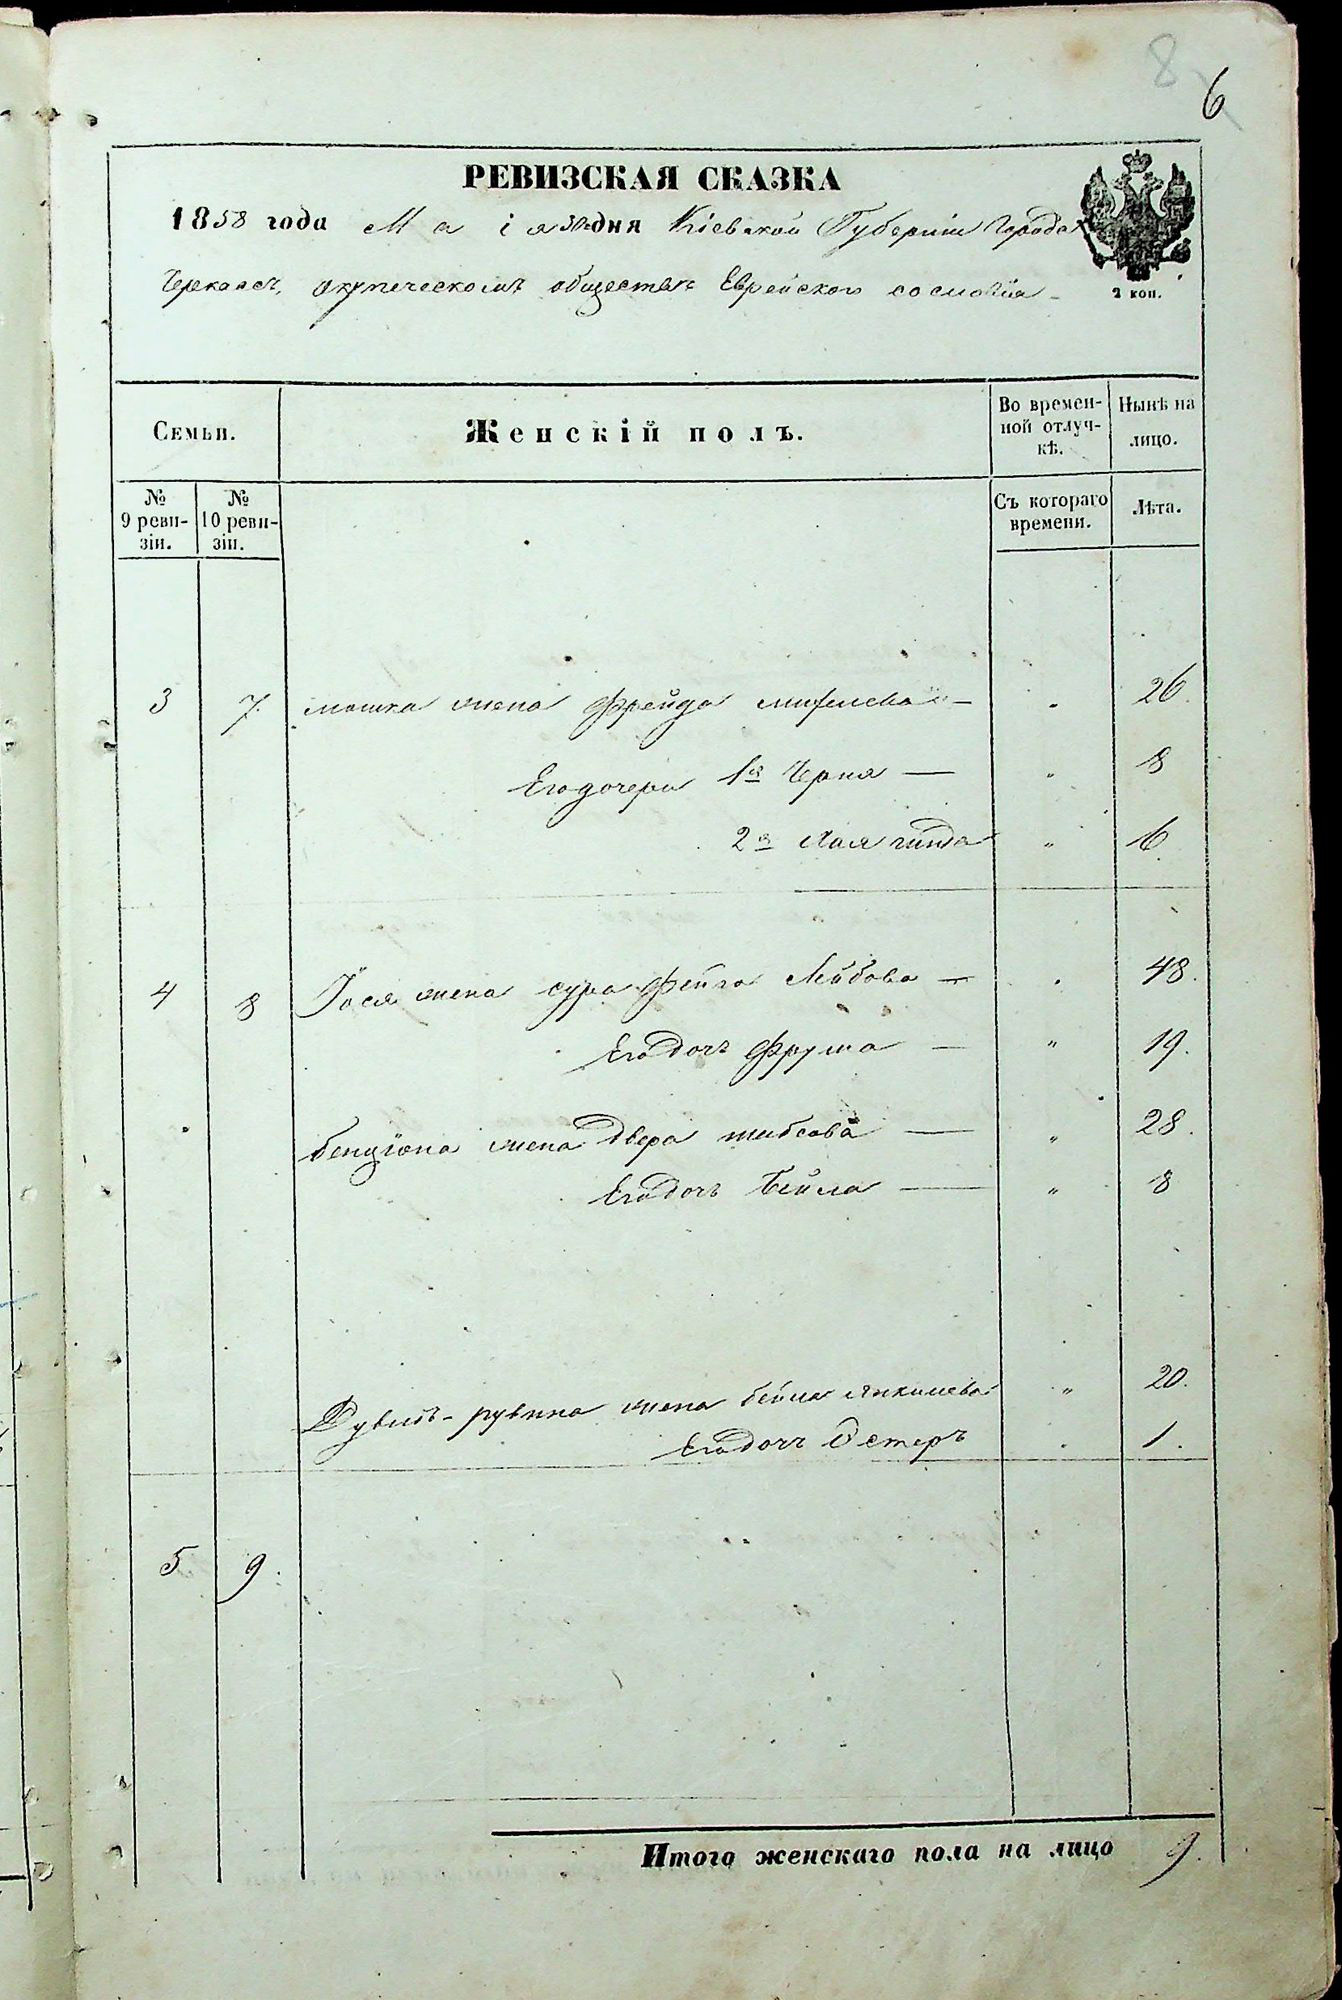 8
6
РЕВИЗСКАЯ СКАЗКА
1858 года Маія 30 дня Кіевской Губерніи Города
Черкасъ, окупеческомъ обществѣ Еврейского сословія
2 коп.
Семьи.
Женскій полъ.
Во времен-
ной отлуч-
кѣ.
Нынѣ на
лицо.
№
9 реви-
зіи.
№
10 реви-
зіи.
Съ котораго
времени.
Лѣта.
3 7. мошка жена Фрейда — " 26.
Его дочери 1я Черня — " 8
2я Хая гинда " 6.
4 8 Іося жена сура Фейга Лейбова — " 48.
Его дочь Фрума — " 19.
бенціона жена Двера — " 28.
Его дочь Бейла — " 8
Дувидъ-рувина жена бейла Янкилева " 20.
Его дочь Эстеръ " 1.
5 9.
Итого женскаго пола на лицо 9.